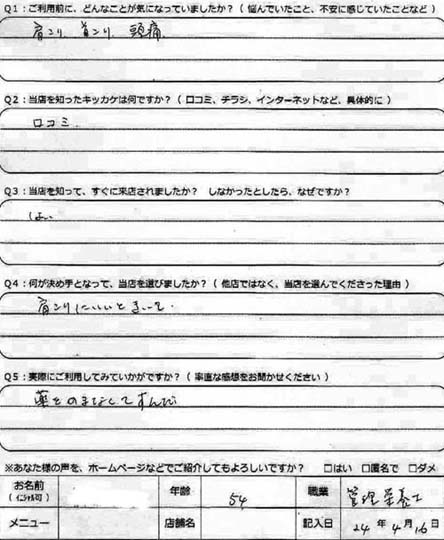 Q1：ご利用前に、どんなことが気になっていましたか？（悩んでいたこと、不安に感じていたことなど）
肩こり 首こり 頭痛
Q2：当店を知ったキッカケは何ですか？（口コミ、チラシ、インターネットなど、具体的に）
口コミ
Q3：当店を知って、すぐに来店されましたか？ しなかったとしたら、なぜですか？
はい
Q4：何が決め手となって、当店を選びましたか？（他店ではなく、当店を選んでくださった理由）
肩こりにいいときいて。
Q5：実際にご利用してみていかがですか？（率直な感想をお聞かせください）
薬をのまなくてすんだ
※あなた様の声を、ホームページなどでご紹介してもよろしいですか？ □はい □匿名で □ダメ
お名前 年齢 54 職業 管理栄養士
（イニシャル可）
メニュー 店舗名 記入日 24年4月16日